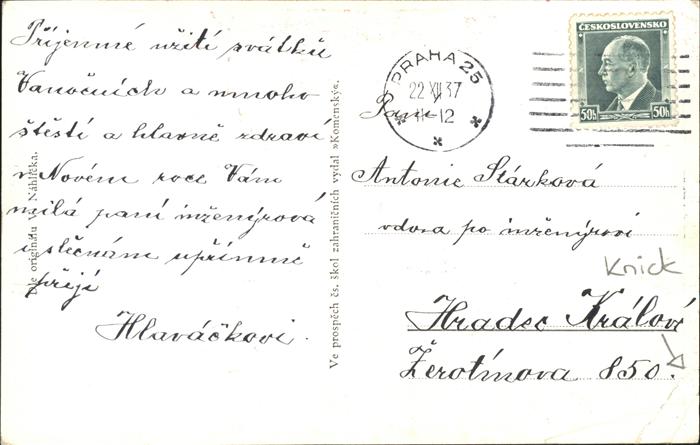 Příjemné užití svátků
Vanočních a mnoho
štěstí a hlavně zdraví
v Novém roce Vám
milá paní inženýrová
i slečnám upřímně
přejí
Hlaváčkovi.
Dle originálu V. Náhlíčka.
Ve prospěch čs. škol zahraničních vydal »Komenský«.
PRAHA 25
22 XII 37
11-12
ČESKOSLOVENSKO
50h 50h
Paní
Antonie Stárková
vdova po inženýrovi
Knick
Hradec Králové
Žerotínova 850.